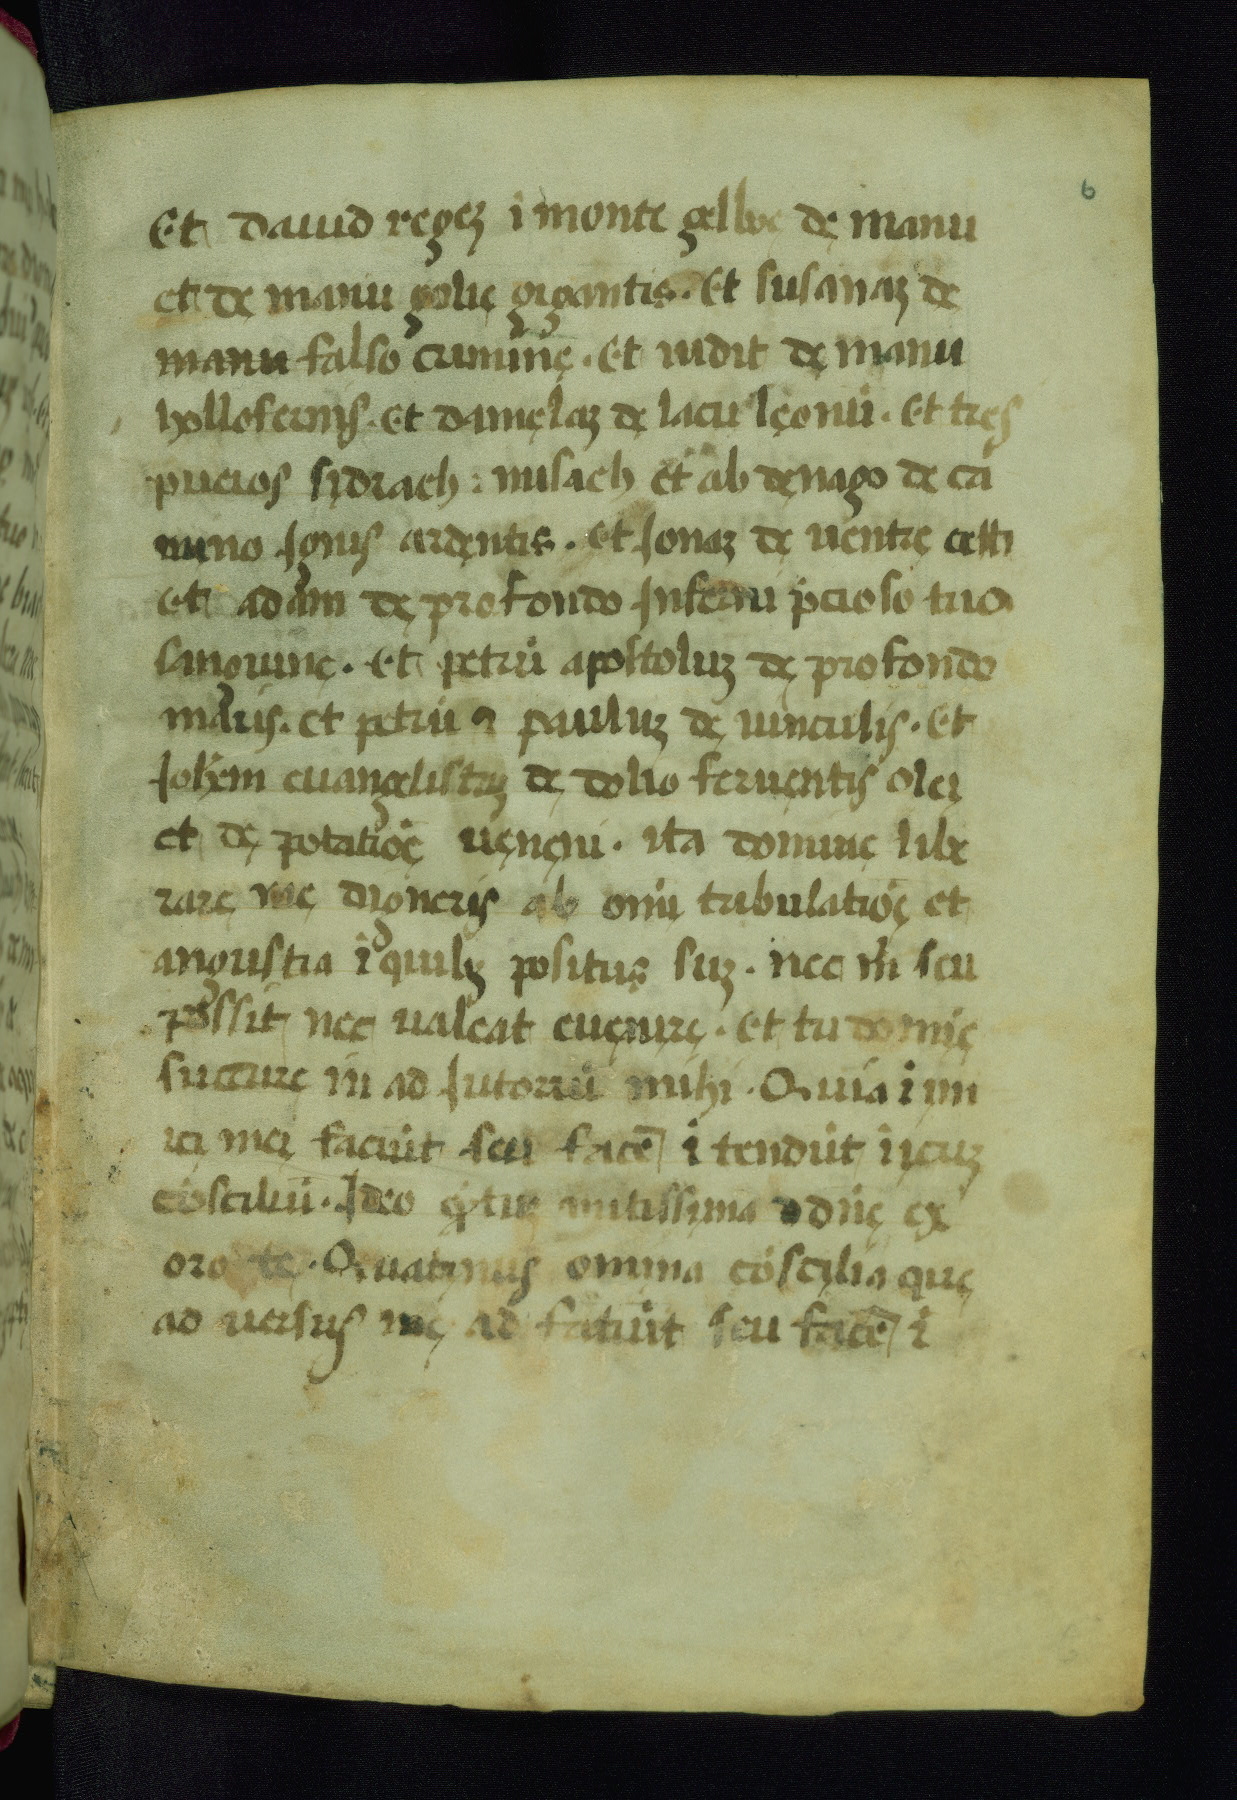 6
Et dauid regeꝫ ī monte gelboę dę manu
et dę manu golię gigantis. Et susanaꝫ de
manu falso criminę. Et iudit dę manu
hollofernis. et danięlaꝫ dę lacu lęonū. et tręs
pueros sidrach: misach et ab dęnago de ca
mino Ignis ardentis. et Jonaꝫ dę uentrę cetti
et adam dę profondo Inferni p̄cioso tuo
sanguinę. et petrū apostoluꝫ dę profondo
maris. et petrū ⁊ pauluꝫ dę uinculis. Et
Joh̄em euangelistaꝫ dę dolio feruentis olei
et dę potatiōę uęnęni. ita dominę libe
rarę mę digneris ab omī tribulatiōę et
angustia ī quibꝫ positus suꝫ. nec m̄ seu
possit nec ualeat euęnirę. et tu domīę
succurę m̄ ad Iutoriū mihi. Quia ī imi
ci mei faciūt seu facē ītendūt īicuꝫ
cōsciliū. Ideo mitissima dn̄ę ex
oro te. Quatinus omnia cōscilia que
ad uersus mę ad fatūit seu facē ī